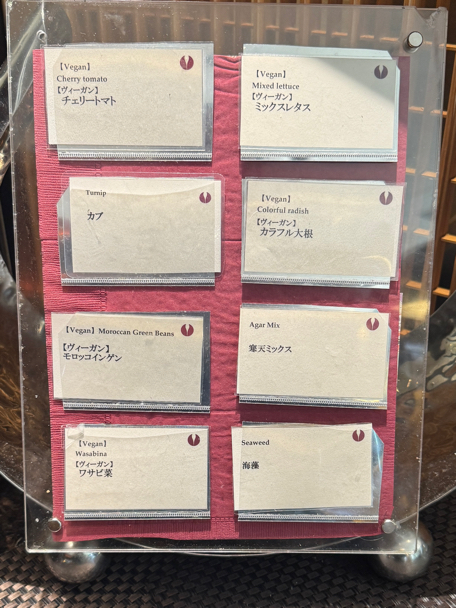 【Vegan】
Cherry tomato
【ヴィーガン】
チェリートマト
【Vegan】
Mixed lettuce
【ヴィーガン】
ミックスレタス
Turnip
カブ
【Vegan】
Colorful radish
【ヴィーガン】
カラフル大根
【Vegan】Moroccan Green Beans
【ヴィーガン】
モロッコインゲン
Agar Mix
寒天ミックス
【Vegan】
Wasabina
【ヴィーガン】
ワサビ菜
Seaweed
海藻